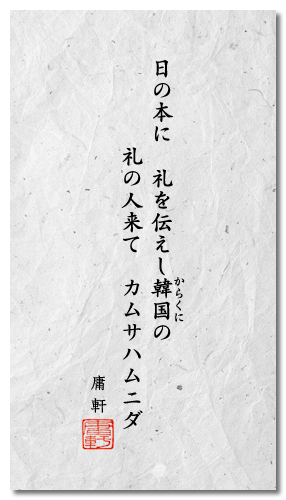 日の本に　礼を伝えし韓国の
からくに
礼の人来て　カムサハムニダ
庸軒
庸軒